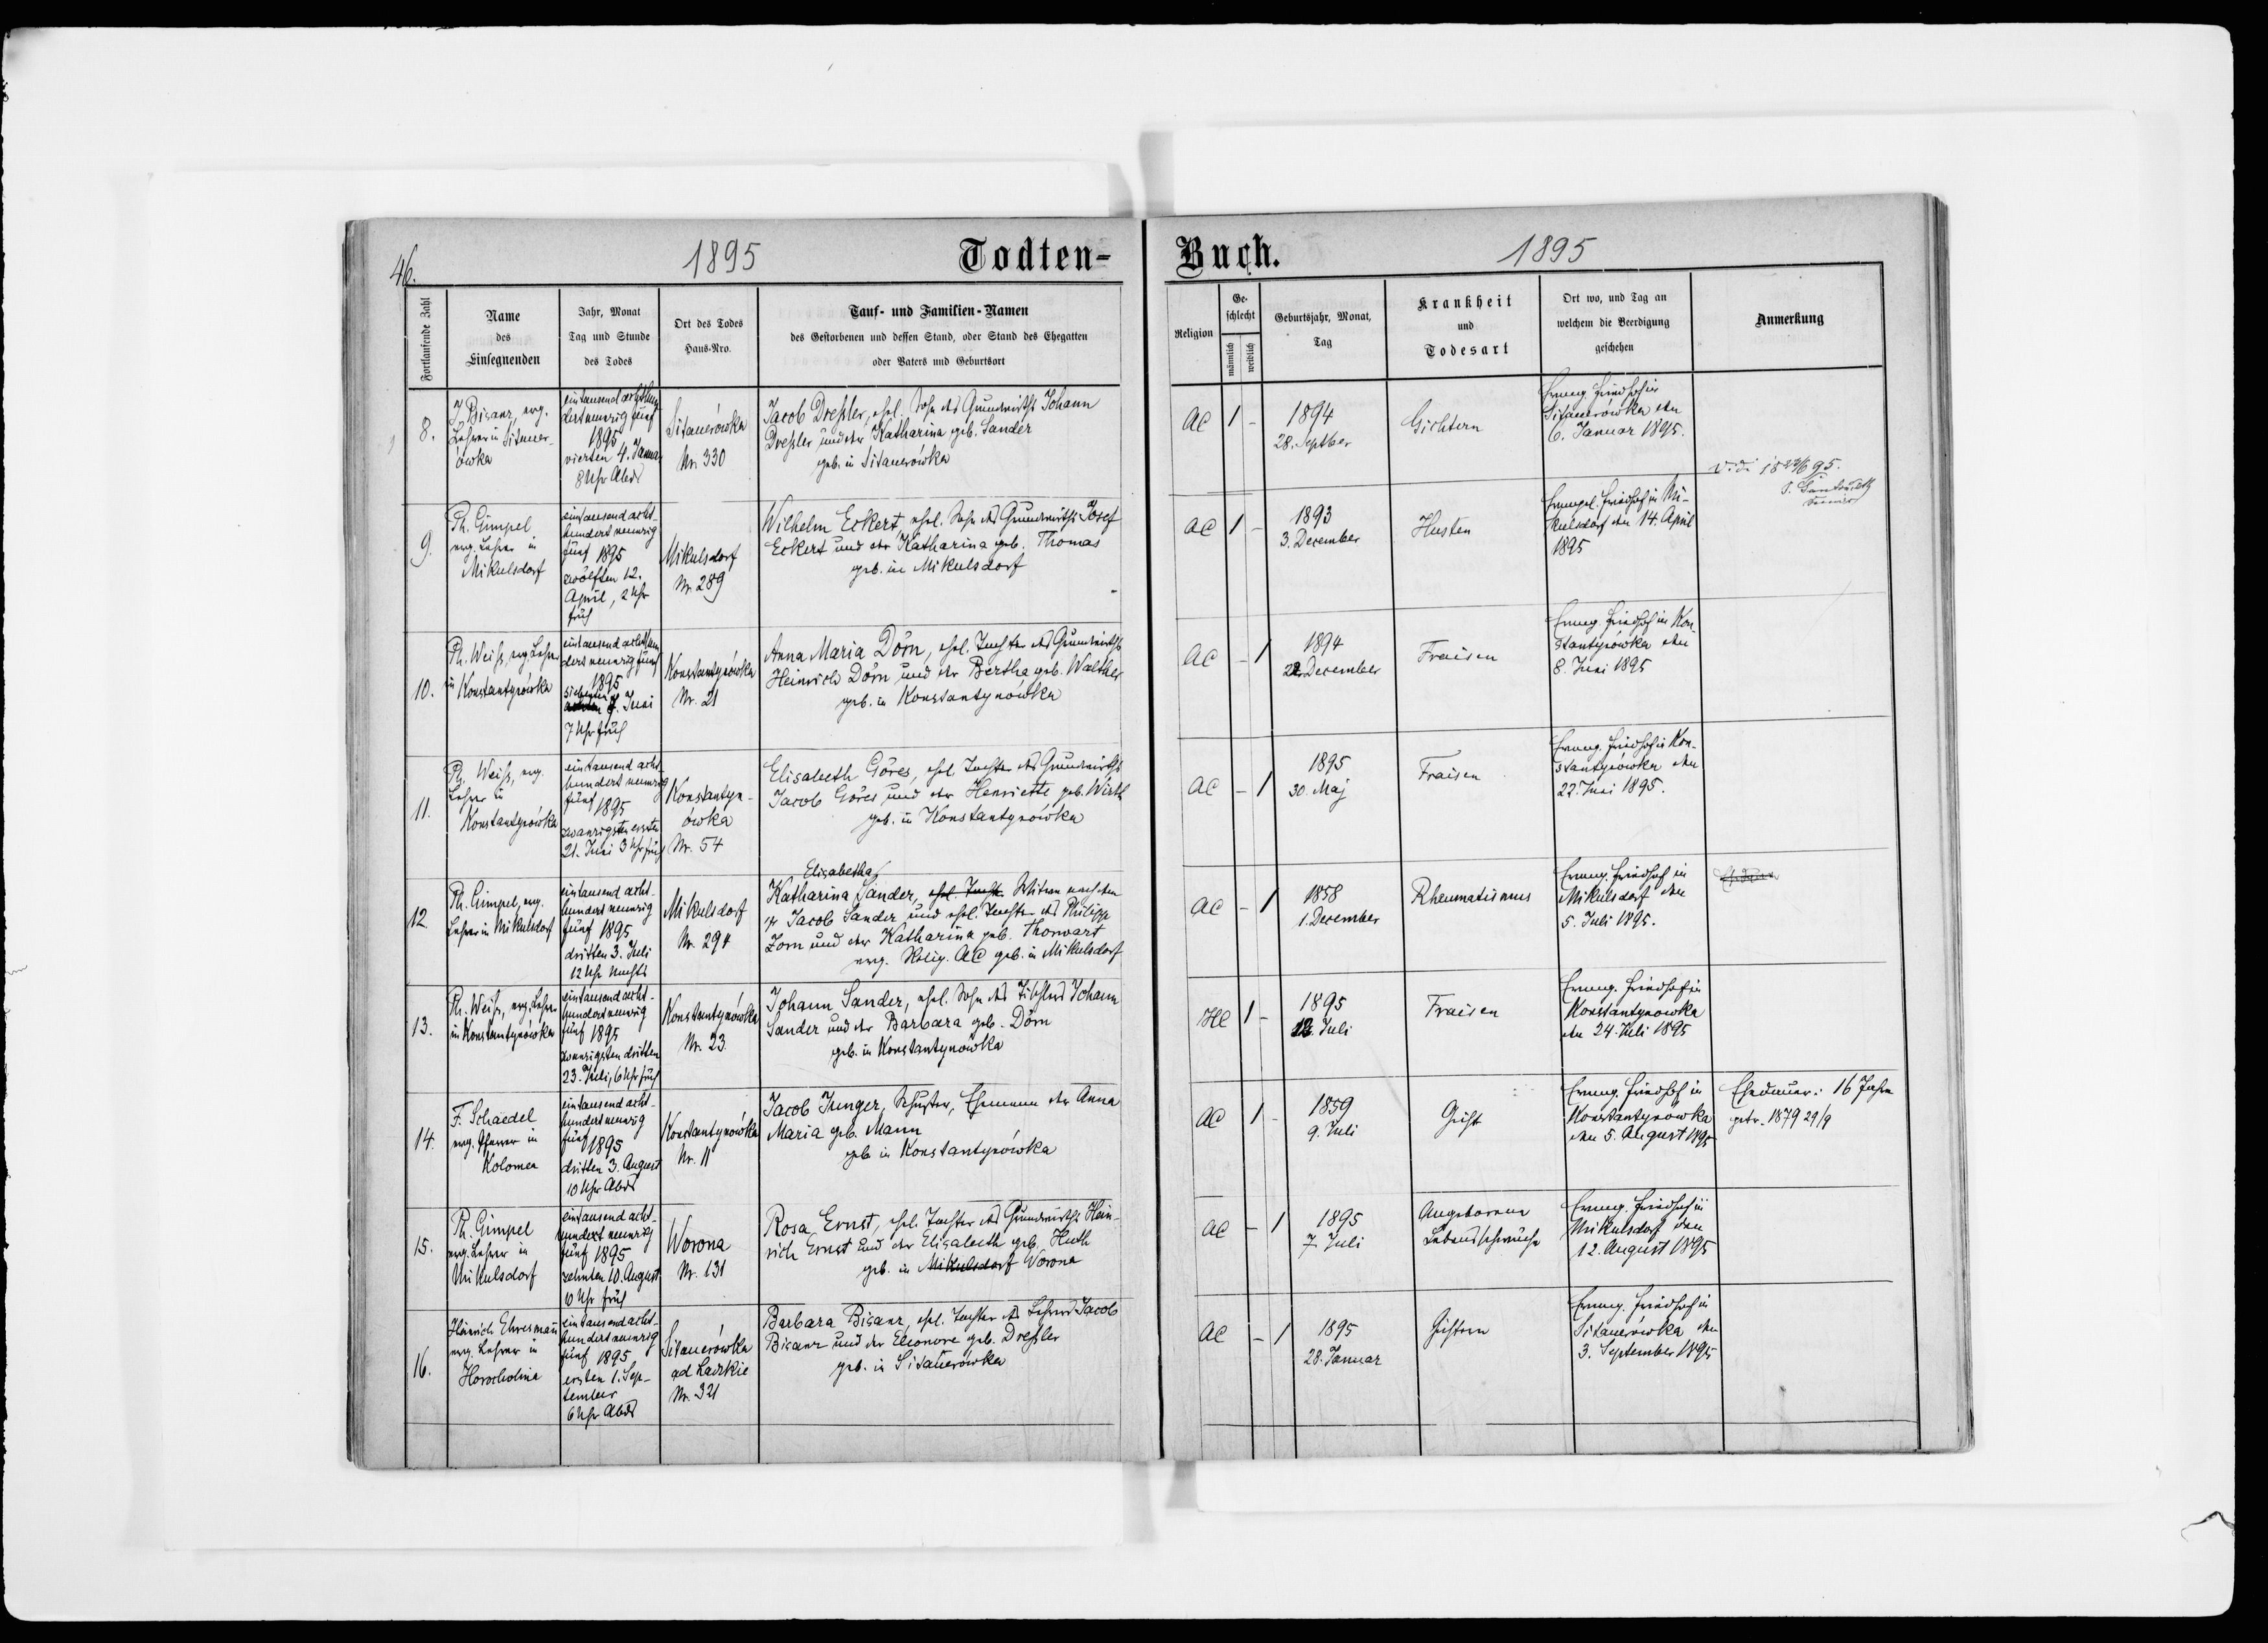 46.
1895
Todten-
Buch.
1895
Fortlaufende Zahl
Name
des
Einsegnenden
Jahr, Monat
Tag und Stunde
des Todes
Ort des Todes
Haus-Nro.
Tauf- und Familien-Namen
des Gestorbenen und dessen Stand, oder Stand des Ehegatten
oder Vaters und Geburtsort
Religion
Ge-
schlecht
männlich
weiblich
Geburtsjahr, Monat,
Tag
Krankheit
und
Todesart
Ort wo, und Tag an
welchem die Beerdigung
geschehen
Anmerkung
8.
J. Bisanz, evg.
Lehrer in Sitauer-
ówka
eintausend achthun
dert neunzig fünf
1895
vierten 4. Januar
8 Uhr Abds
Sitauerówka
Nr. 330
Jacob Dreßler, ehel. Sohn des Grundwirths Johann
Dreßler und der Katharina geb. Sander
geb. in Sitauerówka
AC
1
-
1894
28. Septber
Gichtern
Evang. Friedhof in
Sitauerówka den
6. Januar 1895.
9.
Ph. Gimpel
evg. Lehrer in
Mikulsdorf
eintausend acht-
hundert neunzig
fünf 1895
zwölften 12.
April, 2 Uhr
früh
Mikulsdorf
Nr. 289
Wilhelm Eckert, ehel. Sohn des Grundwirths Josef
Eckert und der Katharina geb. Thomas
geb. in Mikulsdorf
AC
1
-
1893
3. December
Husten
Evangel. Friedhof in Mi-
kulsdorf den 14. April
1895
10.
Ph. Weiß, evg. Lehrer
in Konstantynówka
eintausend achthun
dert neunzig fünf
1895
siebenten
7. Juni
7 Uhr früh
Konstantynówka
Nr. 21
Anna Maria Dörn, ehel. Tochter des Grundwirths
Heinrich Dörn und der Bertha geb. Walther
geb. in Konstantynówka
AC
-
1
1894
December
Fraisen
Evang. Friedhof in Kon-
stantynówka den
8. Juni 1895
11.
Ph. Weiß, evg.
Lehrer in
Konstantynówka
eintausend acht-
hundert neunzig
fünf 1895
zwanzigsten ersten
21. Juni 3 Uhr früh
Konstantyn-
ówka
Nr. 54
Elisabeth Göres, ehel. Tochter des Grundwirths
Jacob Göres und der Henriette geb. Wirth
geb. in Konstantynówka
AC
-
1
1895
30. Maj
Fraisen
Evang. Friedhof in Kon-
stantynówka den
22. Juni 1895.
12.
Ph. Gimpel, evg.
Lehrer in Mikulsdorf
eintausend acht-
hundert neunzig
fünf 1895
dritten 3. Juli
12 Uhr Nachts
Mikulsdorf
Nr. 294
Elisabetha
Katharina Sander, ehel. Tocht. Witwe nach dem
Jacob Sander und ehel. Tochter des Philipp
Zorn und der Katharina geb. Thorwart
evg. Relig. AC geb. in Mikulsdorf
AC
-
1
1858
1. December
Rheumatismus
Evang. Friedhof in
Mikulsdorf den
5. Juli 1895.
13.
Ph. Weiß, evg. Lehrer
in Konstantynówka
eintausend acht-
hundert neunzig
fünf 1895
zwanzigsten dritten
23. Juli, 6 Uhr früh
Konstantynówka
Nr. 23
Johann Sander, ehel. Sohn des Tischlers Johann
Sander und der Barbara geb. Dörn
geb. in Konstantynówka
HC
1
-
1895
Juli
Fraisen
Evang. Friedhof in
Konstantynowka
den 24. Juli 1895
14.
F. Schaedel
evg. Pfarrer in
Kolomea
eintausend acht-
hundert neunzig
fünf 1895
dritten 3. August
10 Uhr Abds
Konstantynówka
Nr. 11
Jacob Junger, Schuster, Ehemann der Anna
Maria geb. Mann
geb. in Konstantynówka
AC
1
-
1859
9. Juli
Gicht
Evang. Friedhof in
Konstantynówka
den 5. August 1895
Ehedauer: 16 Jahre
getr. 1879 29/9
15.
Ph. Gimpel
evg. Lehrer in
Mikulsdorf
eintausend acht-
hundert neunzig
fünf 1895
zehnten 10. August
10 Uhr früh
Worona
Nr. 131
Rosa Ernst, ehel. Tochter des Grundwirths Hein-
rich Ernst und der Elisabeth geb. Huth
geb. in Mikulsdorf Worona
AC
-
1
1895
7. Juli
Angeborene
Lebensschwäche
Evang. Friedhof in
Mikulsdorf den
12. August 1895
16.
Heinrich Ehresmañ
evg. Lehrer in
Horocholina
eintausend acht-
hundert neunzig
fünf 1895
ersten 1. Sep-
tember
6 Uhr Abds
Sitauerówka
ad Ladzkie
Nr. 321
Barbara Bisanz, ehel. Tochter des Lehrers Jacob
Bisanz und der Eleonore geb. Dreßler
geb. in Sitauerówka
AC
-
1
1895
28. Januar
Gichtern
Evang. Friedhof in
Sitauerówka den
3. September 1895